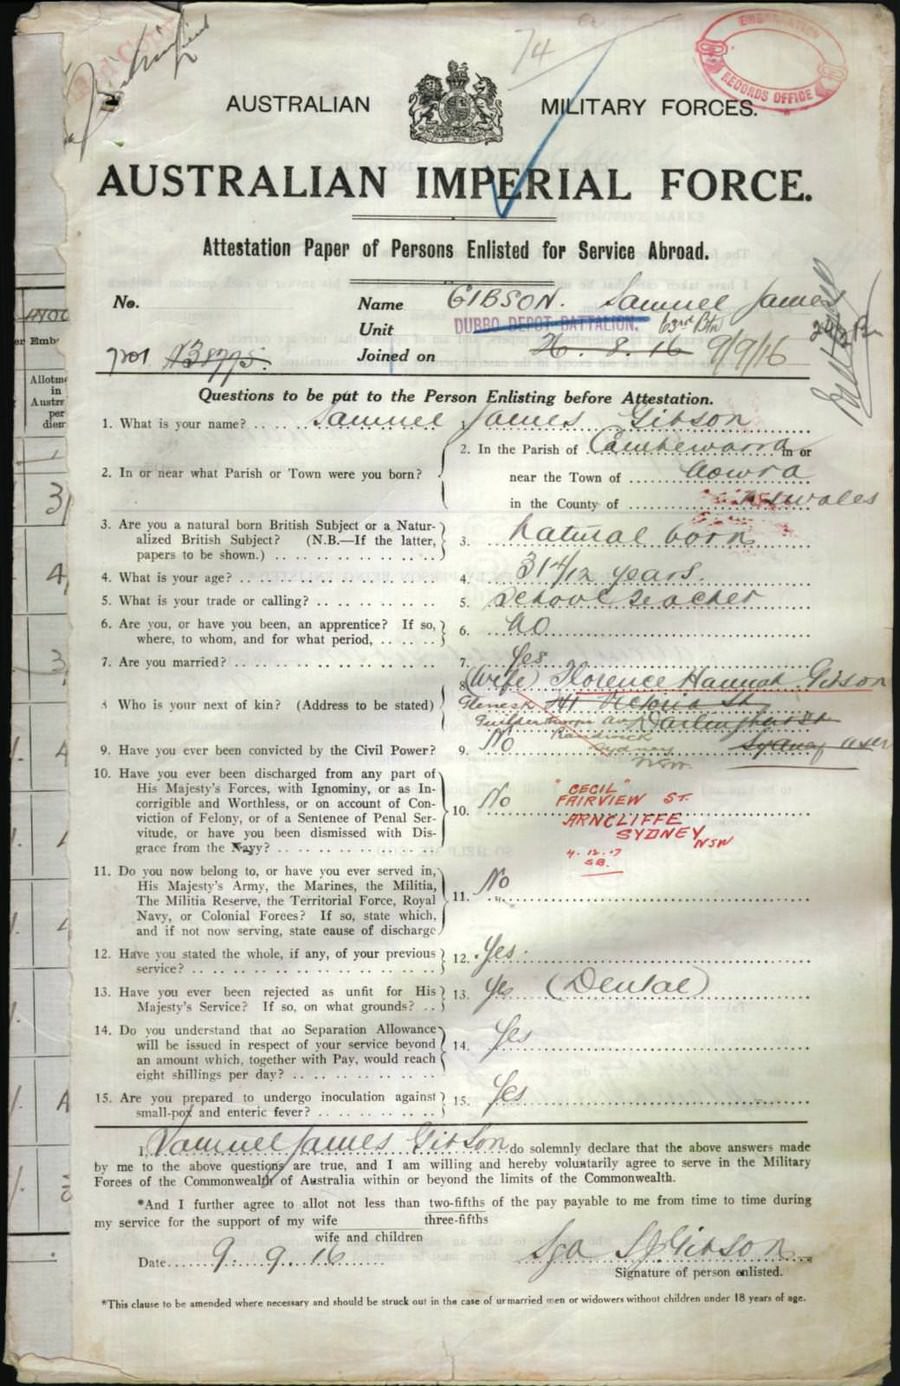 74
EMBARKATION
RECORDS OFFICE
AUSTRALIAN MILITARY FORCES.
AUSTRALIAN IMPERIAL FORCE.
Attestation Paper of Persons Enlisted for Service Abroad.
No. Name GIBSON. Samuel James
Unit DUBBO DEPOT BATTALION. 63rd Btn
701 N38775. Joined on 26.8.16 9/9/16
Questions to be put to the Person Enlisting before Attestation.
1. What is your name? Samuel James Gibson
2. In or near what Parish or Town were you born? 2. In the Parish of Cambewarra in or
near the Town of Nowra
in the County of N.S.Wales
3. Are you a natural born British Subject or a Natur-
alized British Subject? (N.B.—If the latter,
papers to be shown.) 3. Natural born
4. What is your age? 4. 31 4/12 years.
5. What is your trade or calling? 5. School Teacher
6. Are you, or have you been, an apprentice? If so,
where, to whom, and for what period, 6. No
7. Are you married? 7. Yes
8 Who is your next of kin? (Address to be stated) 8. (Wife) Florence Hannah Gibson
Victoria St
Darlinghurst
Randwick
Sydney NSW
9. Have you ever been convicted by the Civil Power? 9. No
10. Have you ever been discharged from any part of
His Majesty's Forces, with Ignominy, or as In-
corrigible and Worthless, or on account of Con-
viction of Felony, or of a Sentence of Penal Ser-
vitude, or have you been dismissed with Dis-
grace from the Navy? 10. No
"CECIL"
FAIRVIEW ST.
ARNCLIFFE
SYDNEY NSW
4.12.17
11. Do you now belong to, or have you ever served in,
His Majesty's Army, the Marines, the Militia,
The Militia Reserve, the Territorial Force, Royal
Navy, or Colonial Forces? If so, state which,
and if not now serving, state cause of discharge 11. No
12. Have you stated the whole, if any, of your previous
service? 12. Yes.
13. Have you ever been rejected as unfit for His
Majesty's Service? If so, on what grounds? 13. Yes (Dental)
14. Do you understand that no Separation Allowance
will be issued in respect of your service beyond
an amount which, together with Pay, would reach
eight shillings per day? 14. Yes
15. Are you prepared to undergo inoculation against
small-pox and enteric fever? 15. Yes
I, Samuel James Gibson do solemnly declare that the above answers made
by me to the above questions are true, and I am willing and hereby voluntarily agree to serve in the Military
Forces of the Commonwealth of Australia within or beyond the limits of the Commonwealth.
*And I further agree to allot not less than two-fifths of the pay payable to me from time to time during
my service for the support of my wife three-fifths
wife and children
Date 9.9.16 Sgd SJ Gibson
Signature of person enlisted.
*This clause to be amended where necessary and should be struck out in the case of unmarried men or widowers without children under 18 years of age.